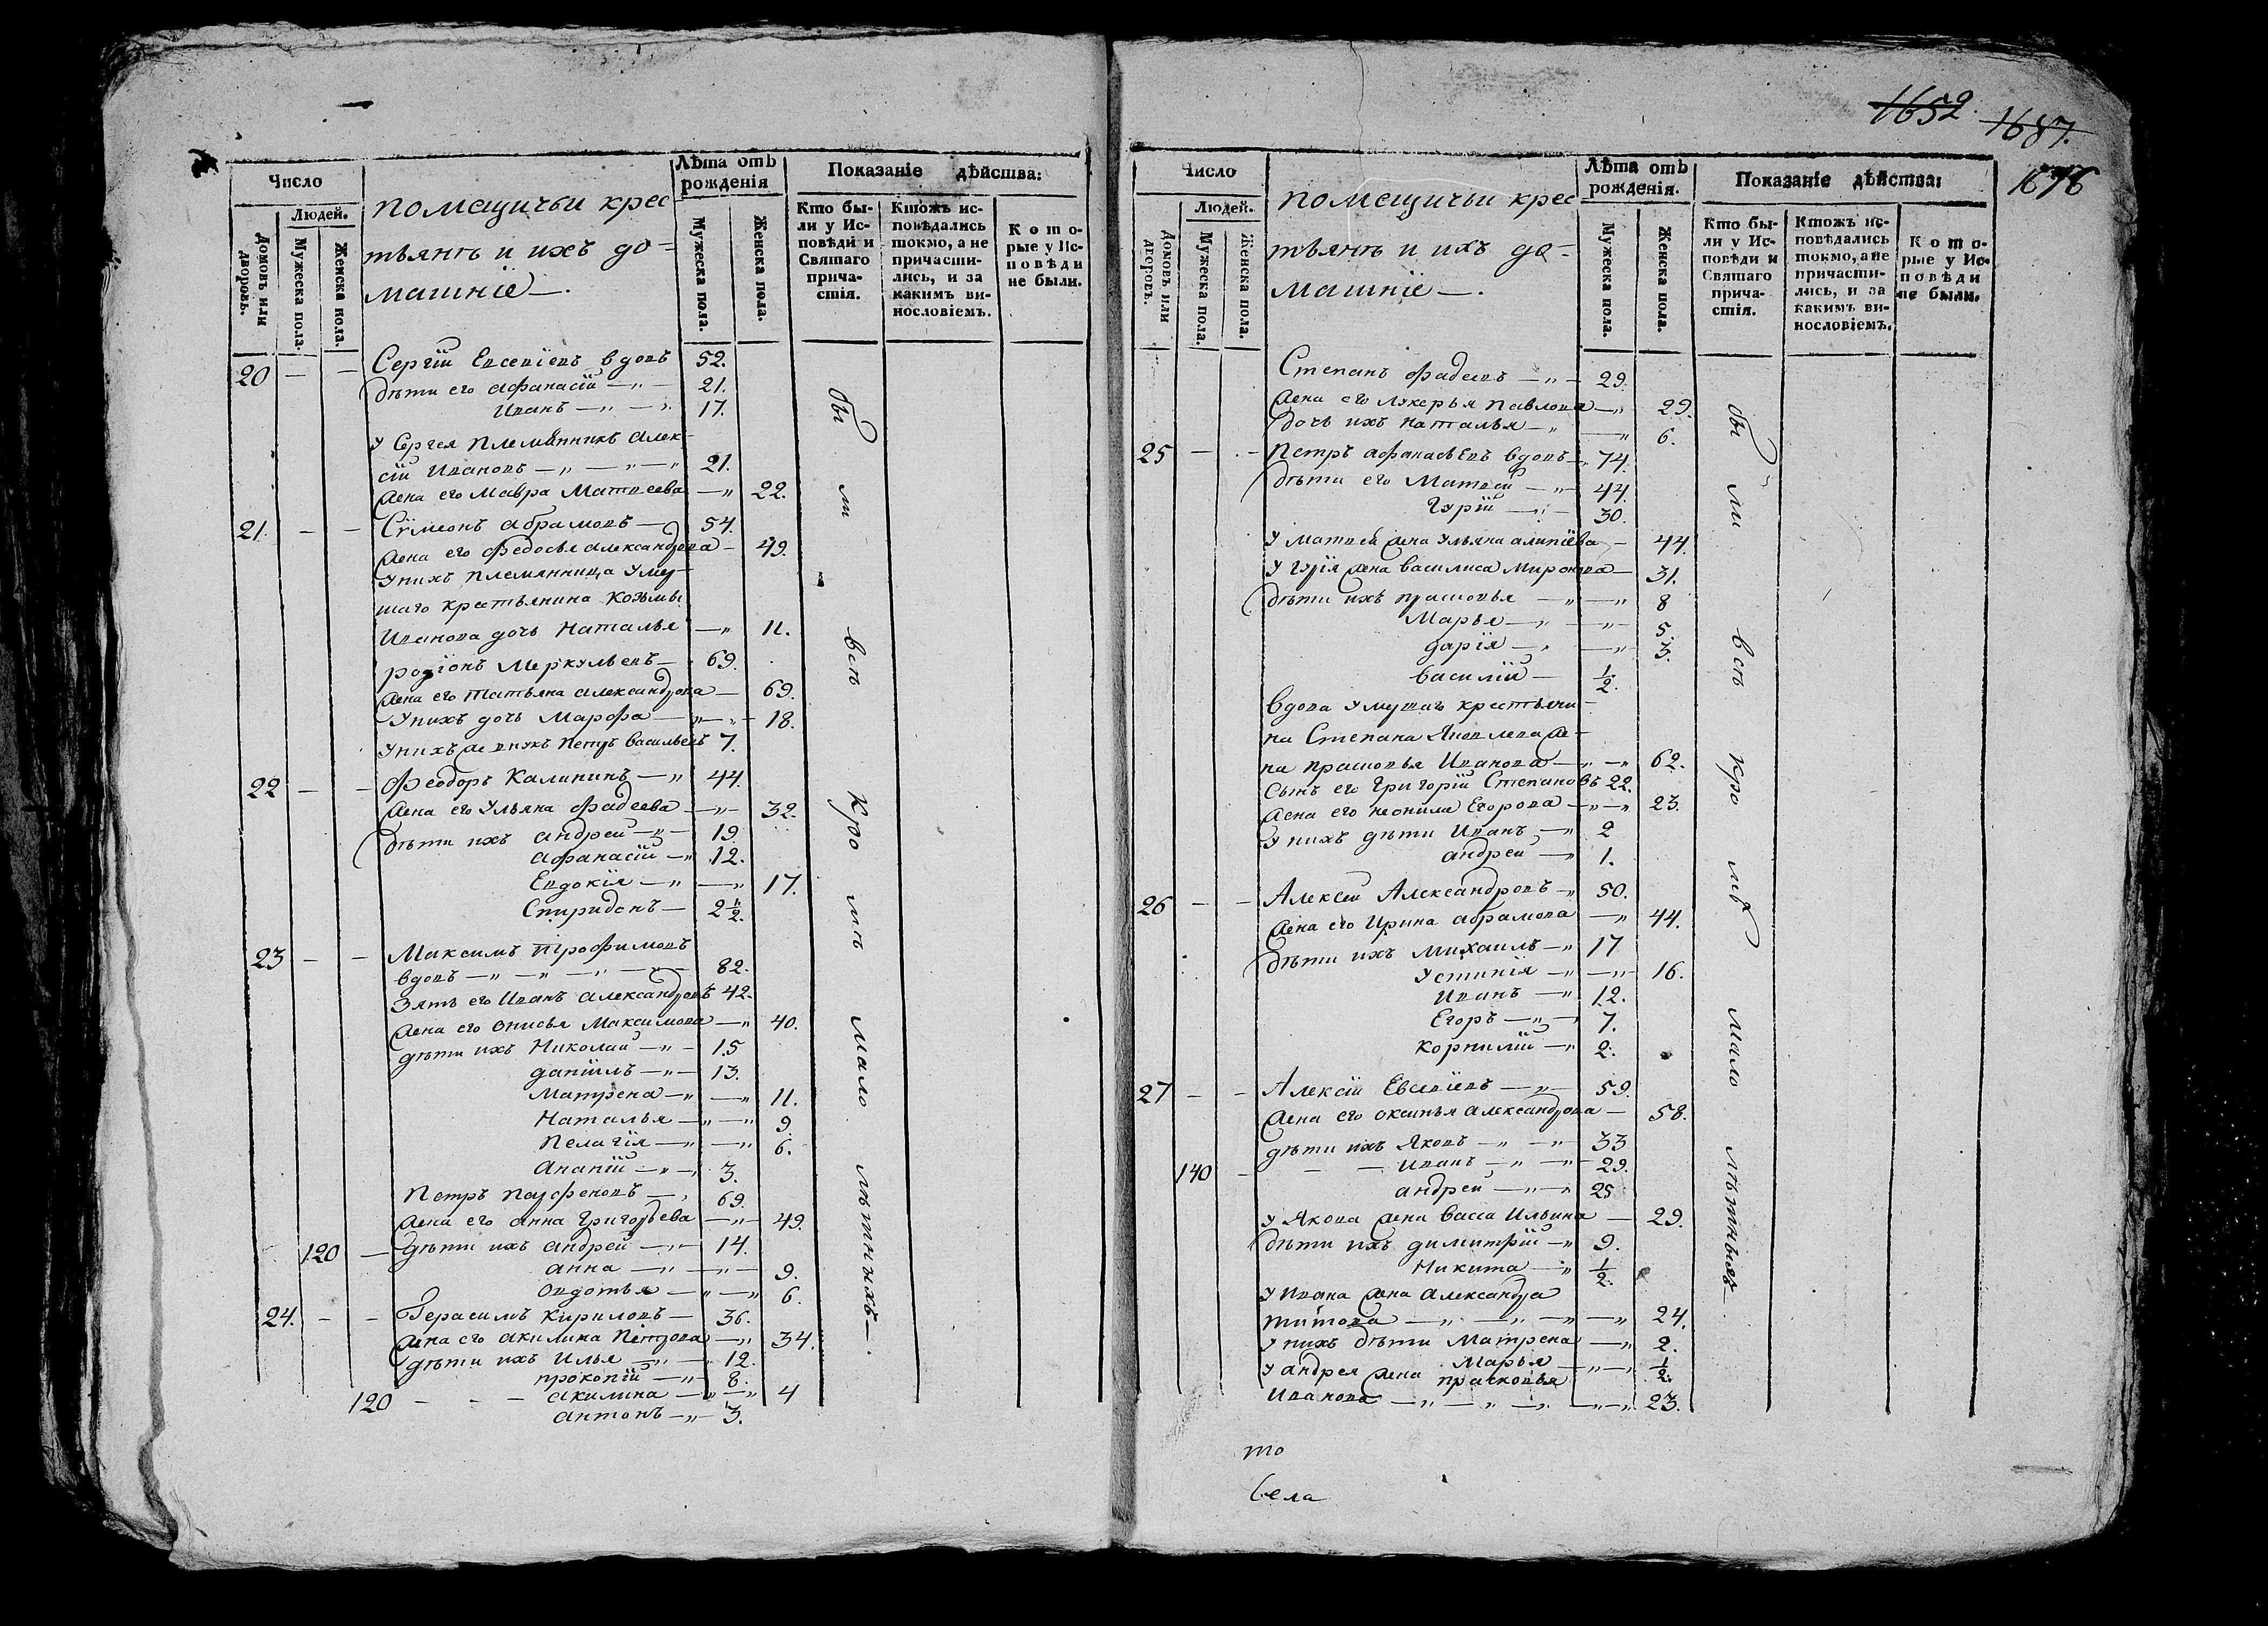 Число
Людей.
Домовъ или дворовъ.
Мужеска пола.
Женска пола.
помещичьи крес
тьянъ и ихъ до-
машніе —.
Лѣта отъ рожденія
Мужеска пола.
Женска пола.
Показаніе дѣйства:
Кто бы-
ли у Ис-
повѣди и
Святаго
прича-
стія.
Ктожъ ис-
повѣдались
токмо, а не
причасти-
лись, и за
какимъ ви-
нословіемъ.
К о т о-
рые у Ис-
п о в ѣ д и
не были.
20 — — Сергій Евсевіевъ вдовъ 52.
дѣти его афанасій —„— 21.
Иванъ —„—„ 17.
У Сергея племянникъ алек-
сій Ивановъ —„—„—„ 21.
жена его Мавра Матвеева —„ 22.
21. — — Сѵмеонъ абрамовъ — 54.
жена его Федосья александрова — 49.
У нихъ племянница умер-
шаго крестьянина Козьмы
Иванова дочь Наталья —„ 11.
родіонъ Меркульевъ — 69.
жена его татьяна александрова — 69.
У нихъ дочь Марфа —„—„— 18.
У нихъ же внукъ Петръ Васильевъ 7.
22 — — Феодоръ Калининъ —„ 44.
жена его Ульяна фадеева —„— 32.
дѣти ихъ андрей —„— 19.
афанасій —„ 12.
Евдокія —„ —„ 17.
Спиридонъ — 2½.
23 — — Максимъ трофимовъ
вдовъ —„—„—„—„— 82.
Зять его Иванъ александровъ 42.
жена его онисья Максимова —„ 40.
дѣти ихъ Николай —„— 15
даніилъ —„— 13.
Матрена —„ —„ 11.
Наталья —„ —„ 9.
Пелагія —„ —„ 6.
Ананій —„—„ 3.
Петръ Парфеновъ —„ 69.
жена его анна Григорьева —„— 49.
120 — дѣти ихъ андрей —„— 14.
анна —„ —„— 9.
овдотья —„ —„ 6.
24. — — Герасимъ Кириловъ — 36.
жена его акилина Петрова —„ 34.
дѣти ихъ Илья —„— 12.
прокопій —„— 8.
120 — — — акилина —„ —„ 4
антонъ —„— 3.
бы ли всѣ кро мѣ мало лѣтныхъ —.
1652.
1687.
1676
Число
Людей.
Домовъ или дворовъ.
Мужеска пола.
Женска пола.
помещичьи крес
тьянъ и ихъ до-
машніе —.
Лѣта отъ рожденія.
Мужеска пола.
Женска пола.
Показаніе дѣйства:
Кто бы-
ли у Ис-
повѣди и
Святаго
прича-
стія.
Ктожъ ис-
повѣдались
токмо, а не
причасти-
лись, и за
какимъ ви-
нословіемъ.
К о т о-
рые у Ис-
п о в ѣ д и
не были.
Степанъ фадеевъ —„— 29.
жена его лукерья Павлова —„ 29.
дочь ихъ наталья —„ —„ 6.
25 — — Петръ афанасьевъ вдовъ —„ 74.
дѣти его Матвей —„— 44.
Гурій —„— 30.
У матвея жена Ульяна алипіева — 44.
У гурія жена василиса Миронова — 31.
дѣти ихъ прасковья —„—„ 8
Марья —„ —„— 5.
дарія —„ —„ 3.
василій — ½.
вдова умершаго крестьяни-
на Степана Яковлева же-
на прасковья Иванова —„—„ 62.
сынъ его Григорій Степановъ 22.
жена его неонила Егорова —„—„ 23.
У нихъ дѣти Иванъ —„ 2
андрей —„ 1.
26 — — Алексей Александровъ —„ 50.
жена его Ирина абрамова —„ 44.
дѣти ихъ михаилъ —„ 17
Устинія —„ —„— 16.
Иванъ —„ 12.
Егоръ —„— 7.
корнилій —„ 2.
27 — — Алексій Евсевіевъ —„— 59.
жена его оксинья александрова — 58.
дѣти ихъ Яковъ —„ —„— 33
140 — — — Иванъ —„ —„— 29.
андрей —„—„ 25
У Якова жена васса Ильина — 29.
дѣти ихъ димитрій —„ 9.
Никита —„ ½.
У Ивана жена Александра
титова —„ —„ —„ —„ 24.
У нихъ дѣти Матрена —„ 2.
Марья —„—„ ½.
У андрея жена прасковья
Иванова —„—„—„ —„—„ 23.
бы ли всѣ кро мѣ мало лѣтныхъ —
то
села